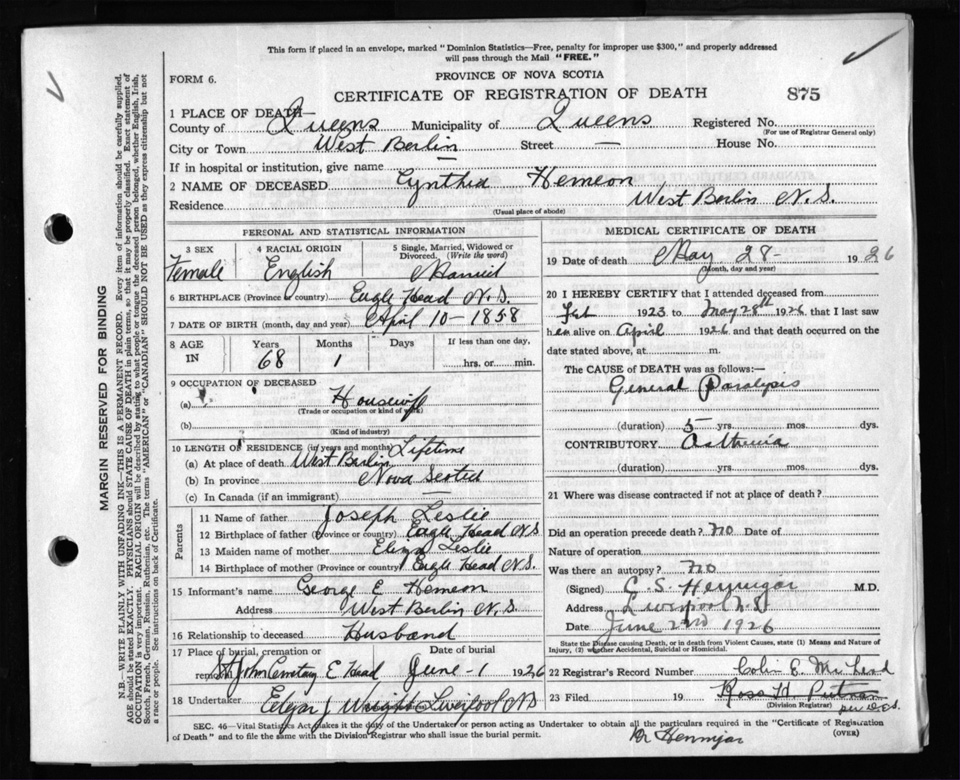 This form if placed in an envelope, marked "Dominion Statistics—Free, penalty for improper use $300," and properly addressed
will pass through the Mail "FREE."
FORM 6.
PROVINCE OF NOVA SCOTIA
CERTIFICATE OF REGISTRATION OF DEATH
875
1 PLACE OF DEATH—
County of Queens Municipality of Queens Registered No.
(For use of Registrar General only)
City or Town West Berlin Street — House No.
If in hospital or institution, give name —
2 NAME OF DECEASED Cynthia Hemeon
Residence West Berlin N.S.
(Usual place of abode)
PERSONAL AND STATISTICAL INFORMATION
3 SEX
Female
4 RACIAL ORIGIN
English
5 Single, Married, Widowed or
Divorced. (Write the word)
Married
6 BIRTHPLACE (Province or country) Eagle Head N.S.
7 DATE OF BIRTH (month, day and year) April 10 - 1858
8 AGE
IN
Years
68
Months
1
Days
If less than one day,
hrs. or min.
9 OCCUPATION OF DECEASED
(a) Housewife
(Trade or occupation or kind of work)
(b)
(Kind of industry)
10 LENGTH OF RESIDENCE (in years and months) Lifetime
(a) At place of death West Berlin
(b) In province Nova Scotia
(c) In Canada (if an immigrant) —
Parents
11 Name of father Joseph Leslie
12 Birthplace of father (Province or country) Eagle Head N.S
13 Maiden name of mother Eliza Leslie
14 Birthplace of mother (Province or country) Eagle Head N.S.
15 Informant's name George E Hemeon
Address West Berlin N.S.
16 Relationship to deceased Husband
17 Place of burial, cremation or
Date of burial
removal St John Cemetery E Head June - 1 1926
18 Undertaker Edgar J Wright Liverpool NS
MEDICAL CERTIFICATE OF DEATH
19 Date of death May 28 - 1926
(Month, day and year)
20 I HEREBY CERTIFY that I attended deceased from
Feb 1923 to May 28th 1926 that I last saw
her alive on April 1926 and that death occurred on
date stated above, at m.
The CAUSE of DEATH was as follows:—
General Paralysis
(duration) 5 yrs. mos. dys.
CONTRIBUTORY Asthenia
(duration) yrs. mos. dys.
21 Where was disease contracted if not at place of death?
Did an operation precede death? no Date of
Nature of operation
Was there an autopsy? no
(Signed) C. S. Hennigar M.D.
Address Liverpool N.S
Date June 2nd 1926
State the Disease causing Death, or in Death from Violent Causes, state (1) Means and Nature of
Injury, (2) whether Accidental, Suicidal or Homicidal.
22 Registrar's Record Number Colin E. McLeod
23 Filed 19 Ross H
(Division Registrar)
per
SEC. 46—Vital Statistics Act makes it the duty of the Undertaker or person acting as Undertaker to obtain all the particulars required in the "Certificate of Registration
of Death" and to file the same with the Division Registrar who shall issue the burial permit.
(OVER)
Dr Hennigar
MARGIN RESERVED FOR BINDING
N.B.—WRITE PLAINLY WITH UNFADING INK—THIS IS A PERMANENT RECORD. Every item of information should be carefully supplied.
AGE should be stated EXACTLY. PHYSICIANS should STATE CAUSE OF DEATH in plain terms, so that it may be properly classified. Exact statement of
OCCUPATION is very important. RACIAL ORIGIN will be described by stating to what people or tongue the deceased person belonged, whether English, Irish,
Scotch, French, German, Russian, Ruthenian, etc. The terms "AMERICAN" or "CANADIAN" SHOULD NOT BE USED as they express citizenship but not
a race or people. See instructions on back of Certificate.